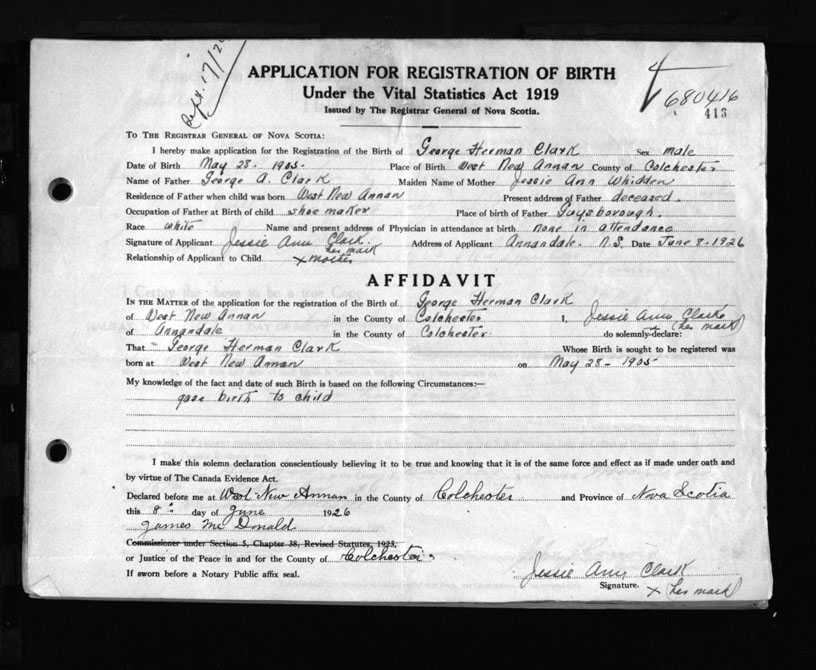 Sept. 17/26
APPLICATION FOR REGISTRATION OF BIRTH
Under the Vital Statistics Act 1919
Issued by The Registrar General of Nova Scotia.
680416
413
TO THE REGISTRAR GENERAL OF NOVA SCOTIA:
I hereby make application for the Registration of the Birth of George Herman Clark Sex male
Date of Birth May 28 - 1905- Place of Birth West New Annan County of Colchester
Name of Father George A. Clark Maiden Name of Mother Jessie Ann Whidden
Residence of Father when child was born West New Annan Present address of Father deceased.
Occupation of Father at Birth of child shoe maker Place of birth of Father Guysborough.
Race white Name and present address of Physician in attendance at birth none in attendance
Signature of Applicant Jessie Ann Clark. Address of Applicant Annandale. N.S. Date June 8-1926
her mark
Relationship of Applicant to Child x mother
AFFIDAVIT
IN THE MATTER of the application for the registration of the Birth of George Herman Clark
of West New Annan in the County of Colchester I, Jessie Ann Clark
of Annandale in the County of Colchester do solemnly declare: (her mark)
That George Herman Clark Whose Birth is sought to be registered was
born at West New Annan on May 28 - 1905
My knowledge of the fact and date of such Birth is based on the following Circumstances:—
gave birth to child
I make this solemn declaration conscientiously believing it to be true and knowing that it is of the same force and effect as if made under oath and
by virtue of The Canada Evidence Act.
Declared before me at West New Annan in the County of Colchester and Province of Nova Scotia
this 8 day of June 1926
James McDonald
Commissioner under Section 5, Chapter 38, Revised Statutes, 1923,
or Justice of the Peace in and for the County of Colchester.
If sworn before a Notary Public affix seal.
Jessie Ann Clark
Signature. x (her mark)